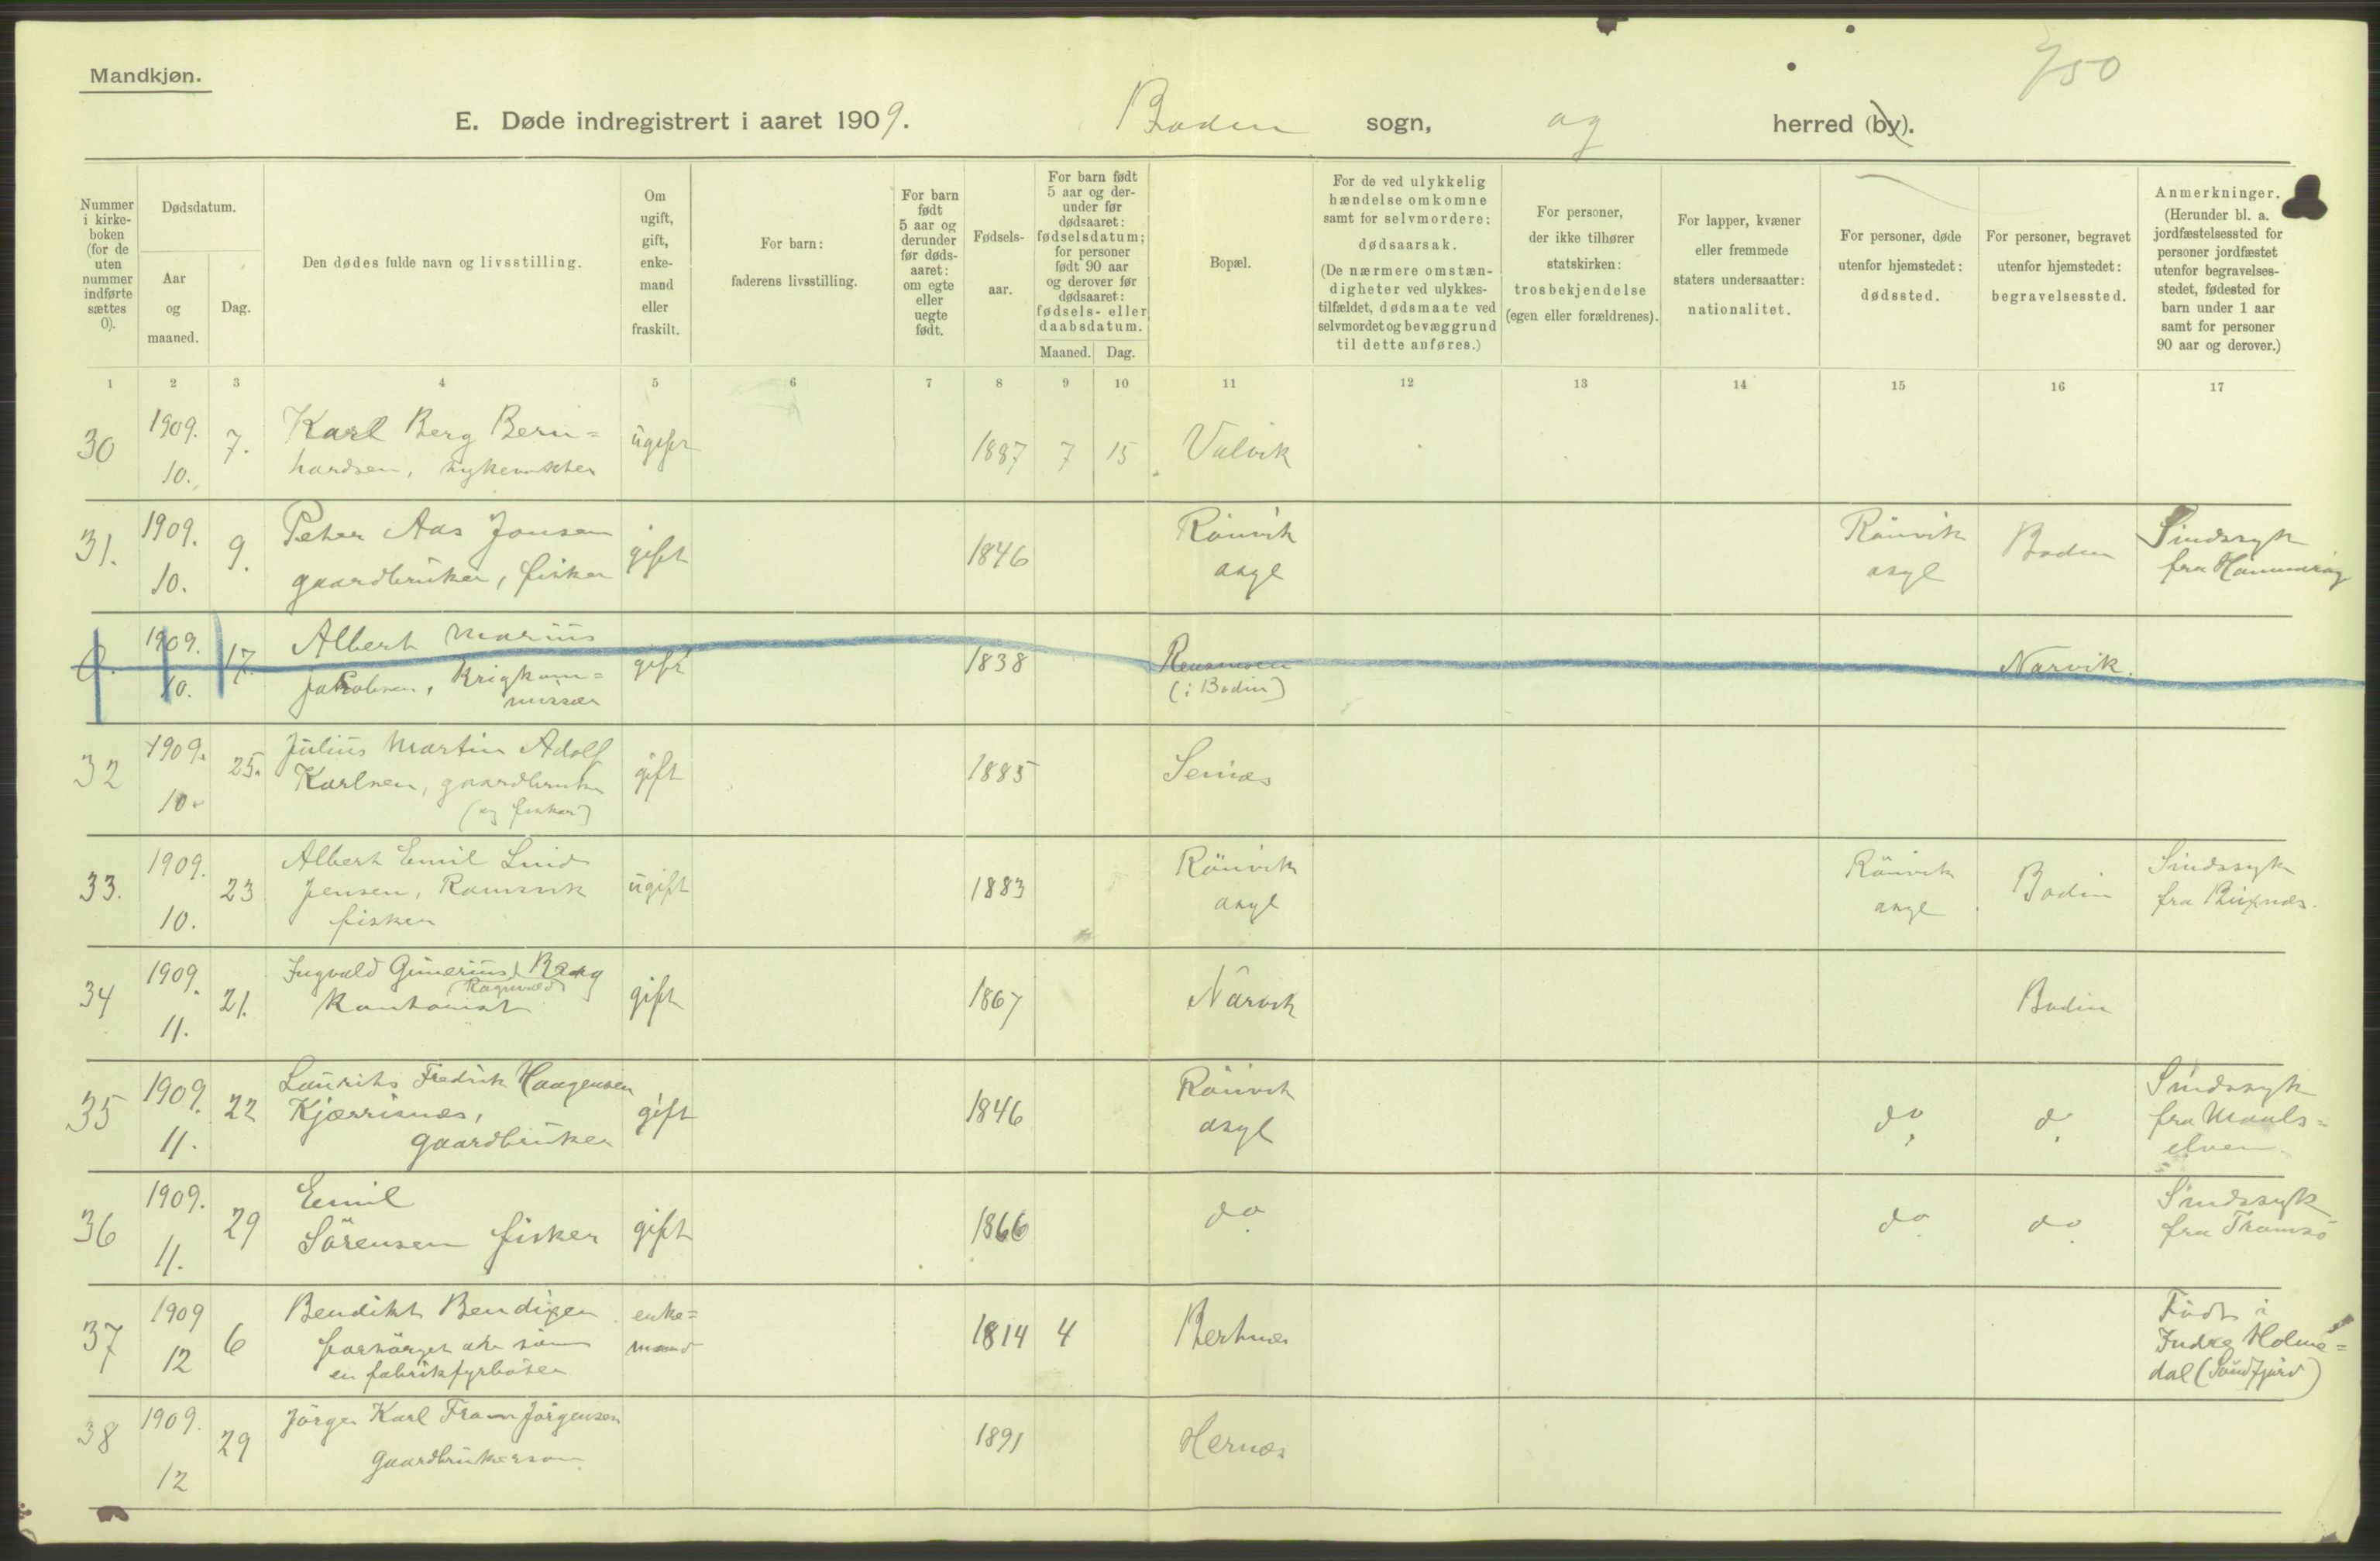 750
Mandkjøn.
E. Døde indregistrert i aaret 1909. Bodin sogn, og herred (by).
Nummer i kirke-boken (for de uten nummer indførte sættes 0).
Dødsdatum.
Aar og maaned.
Dag.
Den dødes fulde navn og livsstilling.
Om ugift, gift, enke-mand eller fraskilt.
For barn: faderens livsstilling.
For barn født 5 aar og derunder før døds-aaret: om egte eller uegte født.
Fødsels-aar.
For barn født 5 aar og der-under før dødsaaret: fødselsdatum; for personer født 90 aar og derover før dødsaaret: fødsels- eller daabsdatum.
Maaned. Dag.
Bopæl.
For de ved ulykkelig hændelse omkomne samt for selvmordere: dødsaarsak. (De nærmere omstæn-digheter ved ulykkes-tilfældet, dødsmaate ved selvmordet og bevæggrund til dette anføres.)
For personer, der ikke tilhører statskirken: trosbekjendelse (egen eller forældrenes).
For lapper, kvæner eller fremmede staters undersaatter: nationalitet.
For personer, døde utenfor hjemstedet: dødssted.
For personer, begravet utenfor hjemstedet: begravelsessted.
Anmerkninger. (Herunder bl. a. jordfæstelsessted for personer jordfæstet utenfor begravelses-stedet, fødested for barn under 1 aar samt for personer 90 aar og derover.)
1 2 3 4 5 6 7 8 9 10 11 12 13 14 15 16 17
30 1909. 10. 7. Karl Berg Bern=
hardsen, ugift 1887 7 15 Valvik
31. 1909. 10. 9. Peter Aas Jonsen
gaardbruker, fisker gift 1846 Rönvik asyl Rönvik asyl Bodin Sindssyk
fra Hammerøy
0. 1909. 10. 17. Albert Marius
Jakobsen, Krigkom=
missær gift 1838 (i Bodin) Narvik.
32 1909. 10. 25. Julius Martin Adolf
Karlsen, gaardbruker
(og fisker) gift 1885 Seines
33. 1909. 10. 23 Albert Emil Lind
Jensen, Ramsvik
fisker ugift 1883 Rönvik asyl Rönvik asyl Bodin Sindssyk
fra Buxnæs.
34 1909. 11. 21. Ingvald Gunerius Berg
(Ragnvald)
Kontorist gift 1867 Narvik Bodin
35 1909. 11. 22 Laurits Fredrik Haagensen
Kjærrisnes,
gaardbruker gift 1846 Rönvik asyl do. do. Sindssyk
fra Maals=
elven
36 1909. 11. 29 Emil
Sörensen fisker gift 1866 do. do. do. Sindssyk
fra Tromsö
37 1909 12 6 Bendikt Bendixen
forsörget av sön
en fabrikfyrböter enke=
mand 1814 4 Bertnes Födt i
Indre Holme=
dal (Söndfjord)
38 1909. 12 29 Jörgen Karl Fram Jörgensen
gaardbrukersön 1891 Hernes